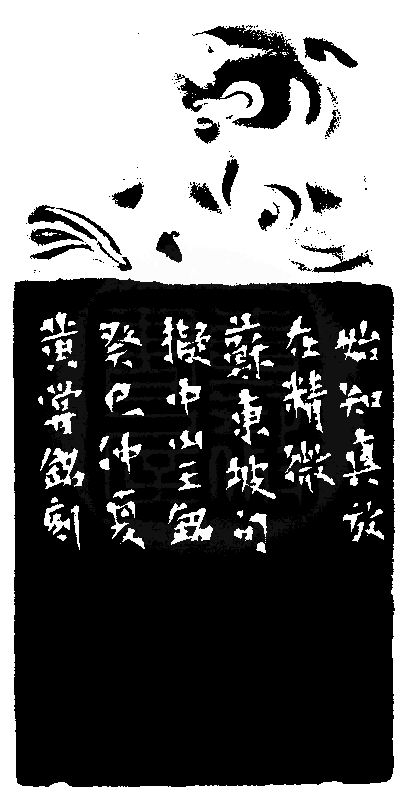 始知真放
在精微
蘇東坡句
擬中山王銘
癸巳仲夏
黃嘗銘刻